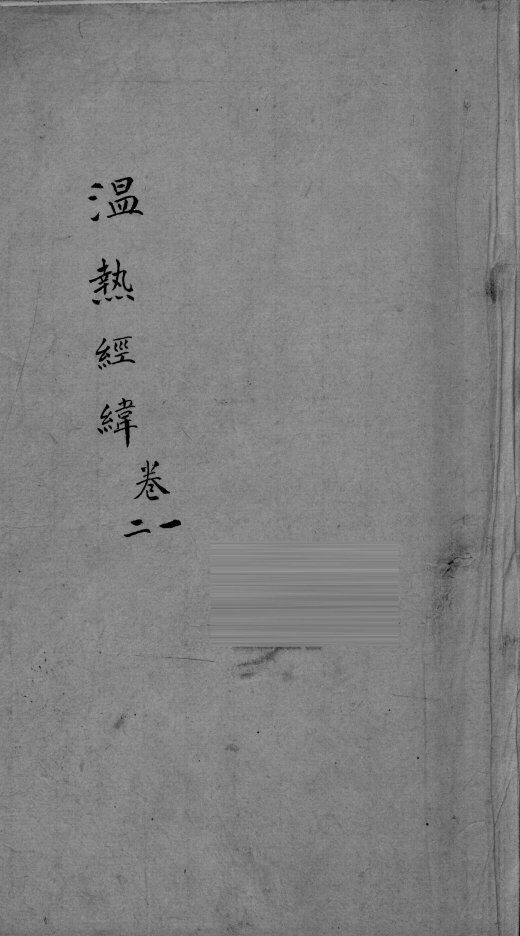 溫熱經緯
卷
一二